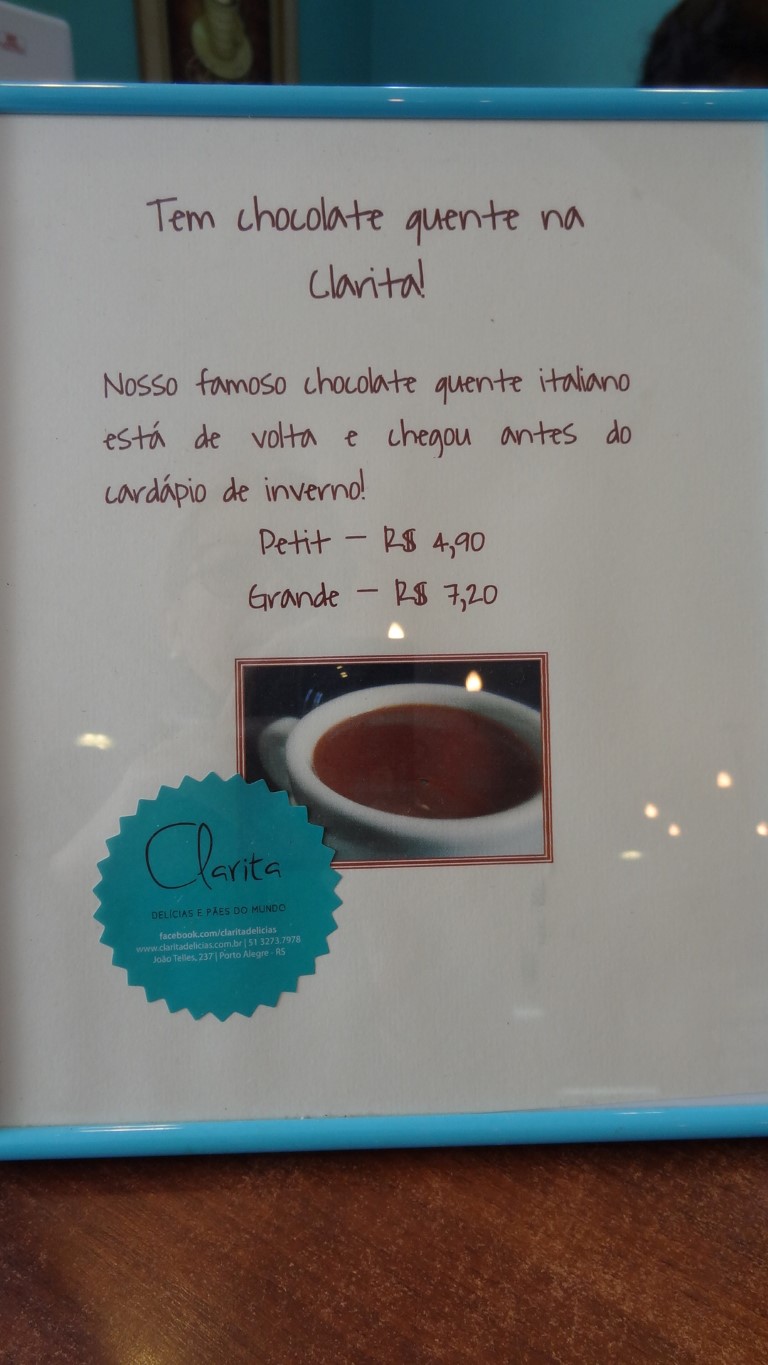 Tem chocolate quente na
Clarita!
Nosso famoso chocolate quente italiano
está de volta e chegou antes do
cardápio de inverno!
Petit – R$ 4,90
Grande – R$ 7,20
Clarita
DELÍCIAS E PÃES DO MUNDO
facebook.com/claritadelicias
www.claritadelicias.com.br | 51 3273.7978
João Telles, 237 | Porto Alegre - RS